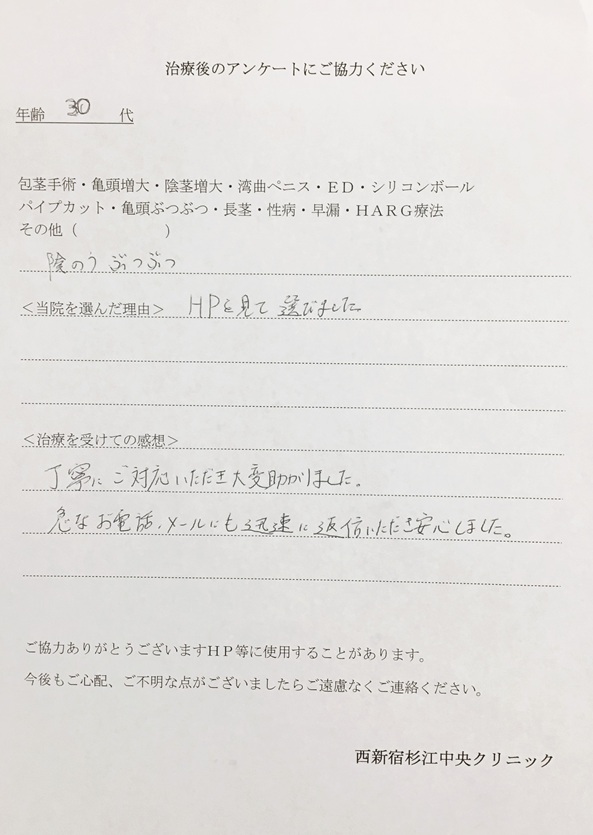 治療後のアンケートにご協力ください
年齢 30 代
包茎手術・亀頭増大・陰茎増大・湾曲ペニス・ED・シリコンボール
パイプカット・亀頭ぶつぶつ・長茎・性病・早漏・HARG療法
その他（　　　　　）
陰のう ぶつぶつ
＜当院を選んだ理由＞ HPを見て選びました
＜治療を受けての感想＞
丁寧にご対応いただき大変助かりました。
急なお電話、メールにも迅速に返信いただき安心しました。
ご協力ありがとうございますHP等に使用することがあります。
今後もご心配、ご不明な点がございましたらご遠慮なくご連絡ください。
西新宿杉江中央クリニック